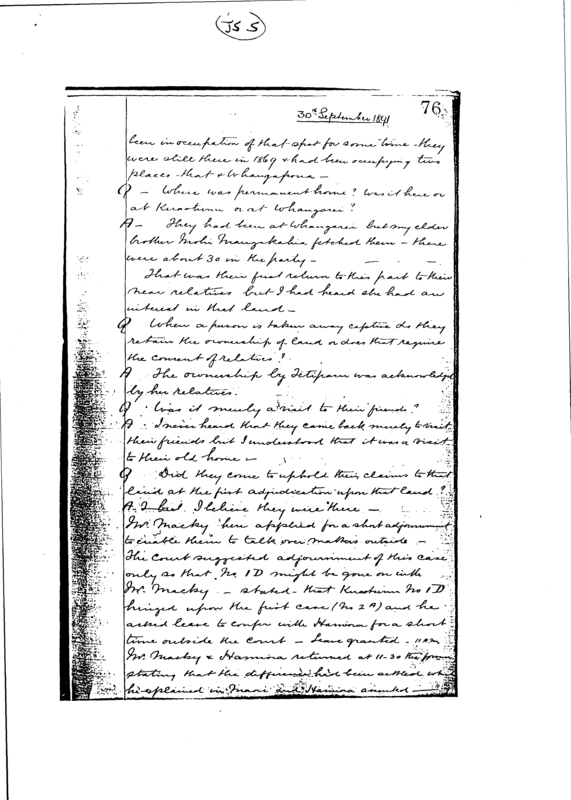 JS 5
76
30th September 1891
been in occupation of that spot for some time - they
were still there in 1869 & had been occupying two
places - that & Whangapoua -
Q - Where was permanent home? Was it here or
at Kuaotunu or at Whangarei?
A - They had been at Whangarei but my elder
brother Mohi Mangakahia fetched them - there
were about 30 in the party -
That was their first return to this part to their
near relatives but I had heard she had an
interest in that land -
Q When a person is taken away captive do they
retain the ownership of land or does that require
the consent of relatives?
A The ownership by was acknowledged
by her relatives.
Q Was it merely a visit to their friends?
A I never heard that they came back merely to visit
their friends but I understood that it was a visit
to their old home -
Q Did they come to uphold their claims to that
land at the first adjudication upon that land?
A I believe they were there -
Mr. Macky here applied for a short adjournment
to enable them to talk over matters outside -
The Court suggested adjournment of this case
only so that No 1D might be gone on with
Mr. Macky - stated - that Kuaotunu No 1D
hinged upon the first case (No 2A) and he
asked leave to confer with Hamiora for a short
time outside the Court - Leave granted - 11 am
Mr. Macky & Hamiora returned at 11-30 the
stating that the difference had been settled
he explained in Maori and Hamiora assented -